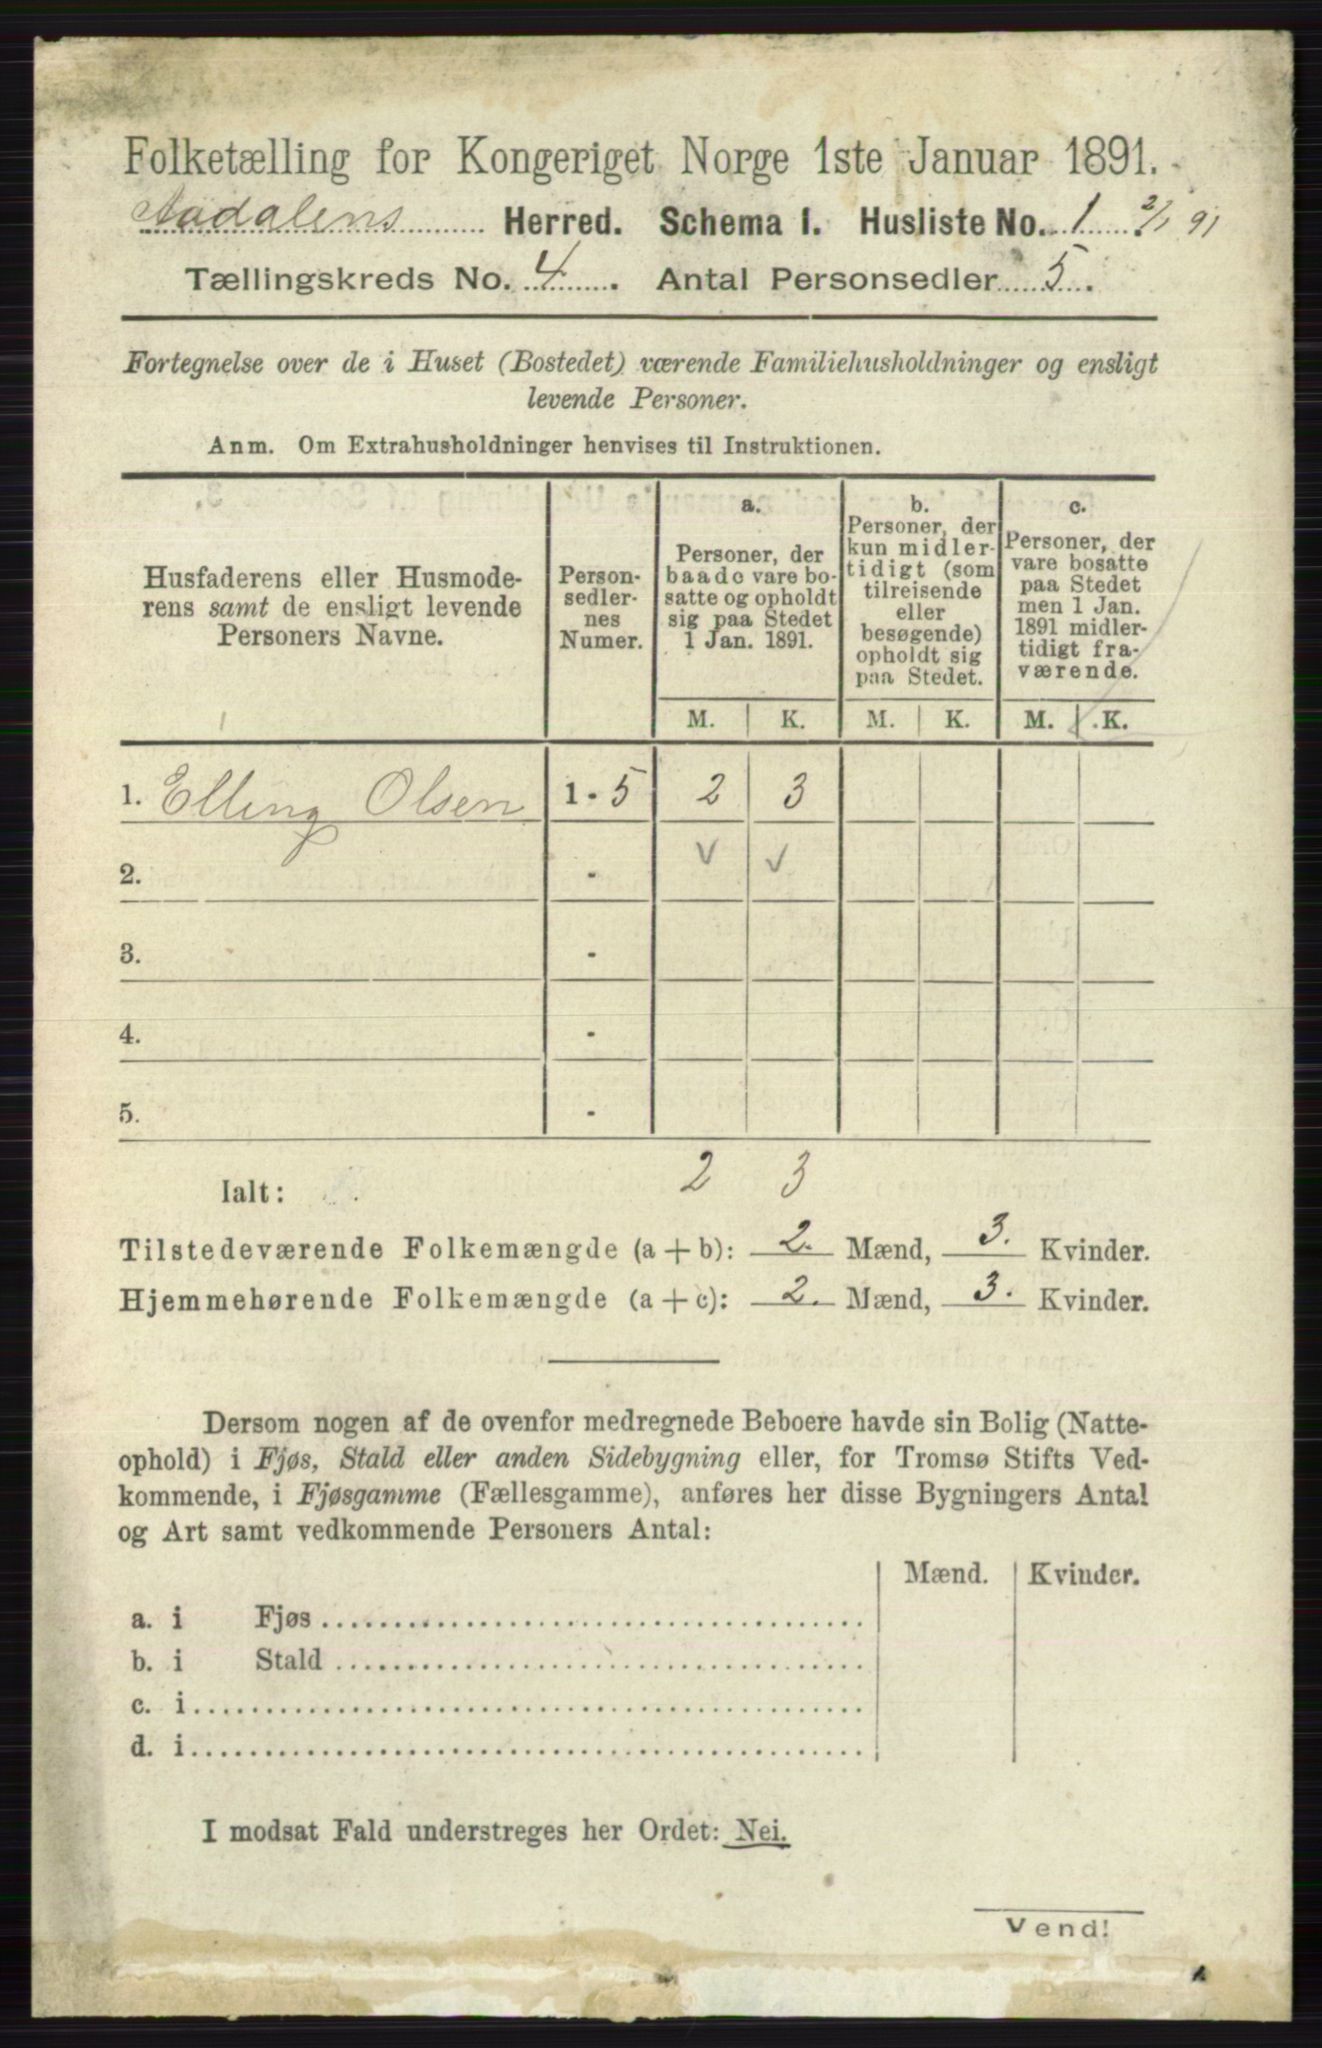 Folketælling for Kongeriget Norge 1ste Januar 1891.
Aadalens Herred. Schema 1. Husliste No. 1 2/1 91
Tællingskreds No. 4. Antal Personsedler 5.
Fortegnelse over de i Huset (Bostedet) værende Familiehusholdninger og ensligt
levende Personer.
Anm. Om Extrahusholdninger henvises til Instruktionen.
Husfaderens eller Husmode-
rens samt de ensligt levende
Personers Navne.
Person-
sedler-
nes
Numer.
a.
Personer, der
baade vare bo-
satte og opholdt
sig paa Stedet
1 Jan. 1891.
b.
Personer, der
kun midler-
tidigt (som
tilreisende
eller
besøgende)
opholdt sig
paa Stedet.
c.
Personer, der
vare bosatte
paa Stedet
men 1 Jan.
1891 midler-
tidigt fra-
værende.
M. K. M. K. M. K.
1. Elling Olsen 1 - 5 2 3
2. -
3. -
4. -
5. -
Ialt: 2 3
Tilstedeværende Folkemængde (a + b): 2. Mænd, 3. Kvinder.
Hjemmehørende Folkemængde (a + c): 2. Mænd, 3. Kvinder.
Dersom nogen af de ovenfor medregnede Beboere havde sin Bolig (Natte-
ophold) i Fjøs, Stald eller anden Sidebygning eller, for Tromsø Stifts Ved-
kommende, i Fjøsgamme (Fællesgamme), anføres her disse Bygningers Antal
og Art samt vedkommende Personers Antal:
Mænd. Kvinder.
a. i Fjøs
b. i Stald
c. i
d. i
I modsat Fald understreges her Ordet: Nei.
Vend!